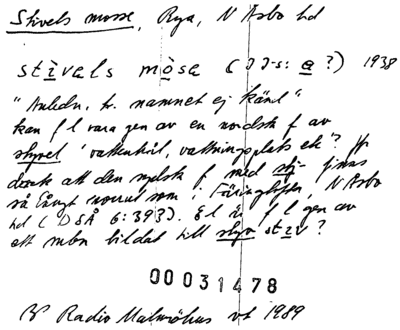 Stivels mosse, Rya, N Åsbo hd
stịvels mòsa ( : a ?) 1938
"Anledn. t. namnet ej känd"
kan f l vara gen av en nordsk f av
styvel 'vattenhål, vattningsplats etc'? Jfr
dock att den sydsk f med stj- finns
så långt norrut som i Färingtofta, N Åsbo
hd (DSÅ 6:393). El är f l gen av
ett mbn bildat till styv stiv?
00031478
BP Radio Malmöhus vt 1989